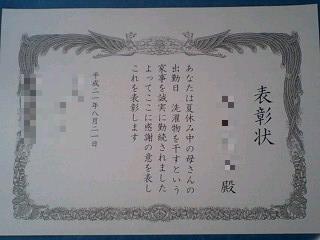 表彰状
殿
あなたは夏休み中の母さんの
出勤日　洗濯物を干すという
家事を誠実に勤続されました
よってここに感謝の意を表し
これを表彰します
平成二一年八月二一日